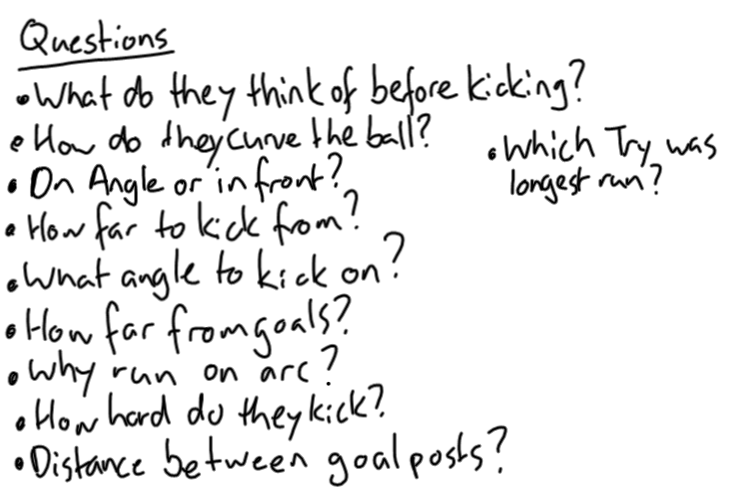 Questions
•What do they think of before kicking?
• How do they curve the ball?
• On Angle or in front?
• How far to kick from?
• What angle to kick on?
• How far from goals?
• Why run on arc?
• How hard do they kick?
• Distance between goal posts?
• Which Try was
longest run?